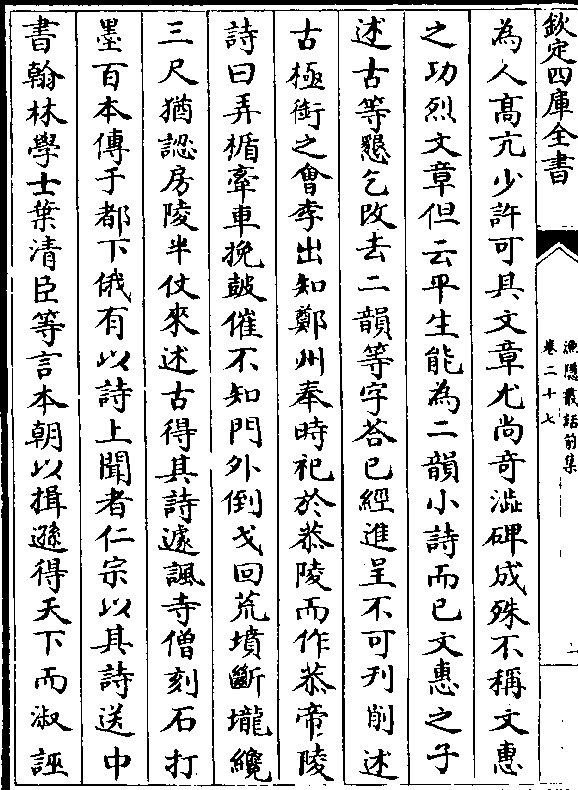 欽定四庫全書
漁隱叢話前集
卷二十七
上
為人髙亢少許可其文章尤尚竒澁碑成殊不稱文惠
之功烈文章但云平生能為二韻小詩而已文惠之子
述古等懇乞改去二韻等字答已經進呈不可刋削述
古極銜之會李出知鄭州奉時祀於恭陵而作恭帝陵
詩曰弄楯牽車挽鼓催不知門外倒戈回荒墳斷壠纔
三尺猶認房陵半仗來述古得其詩遽諷寺僧刻石打
墨百本傳于都下俄有以詩上聞者仁宗以其詩送中
書翰林學士葉清臣等言本朝以揖遜得天下而淑誣